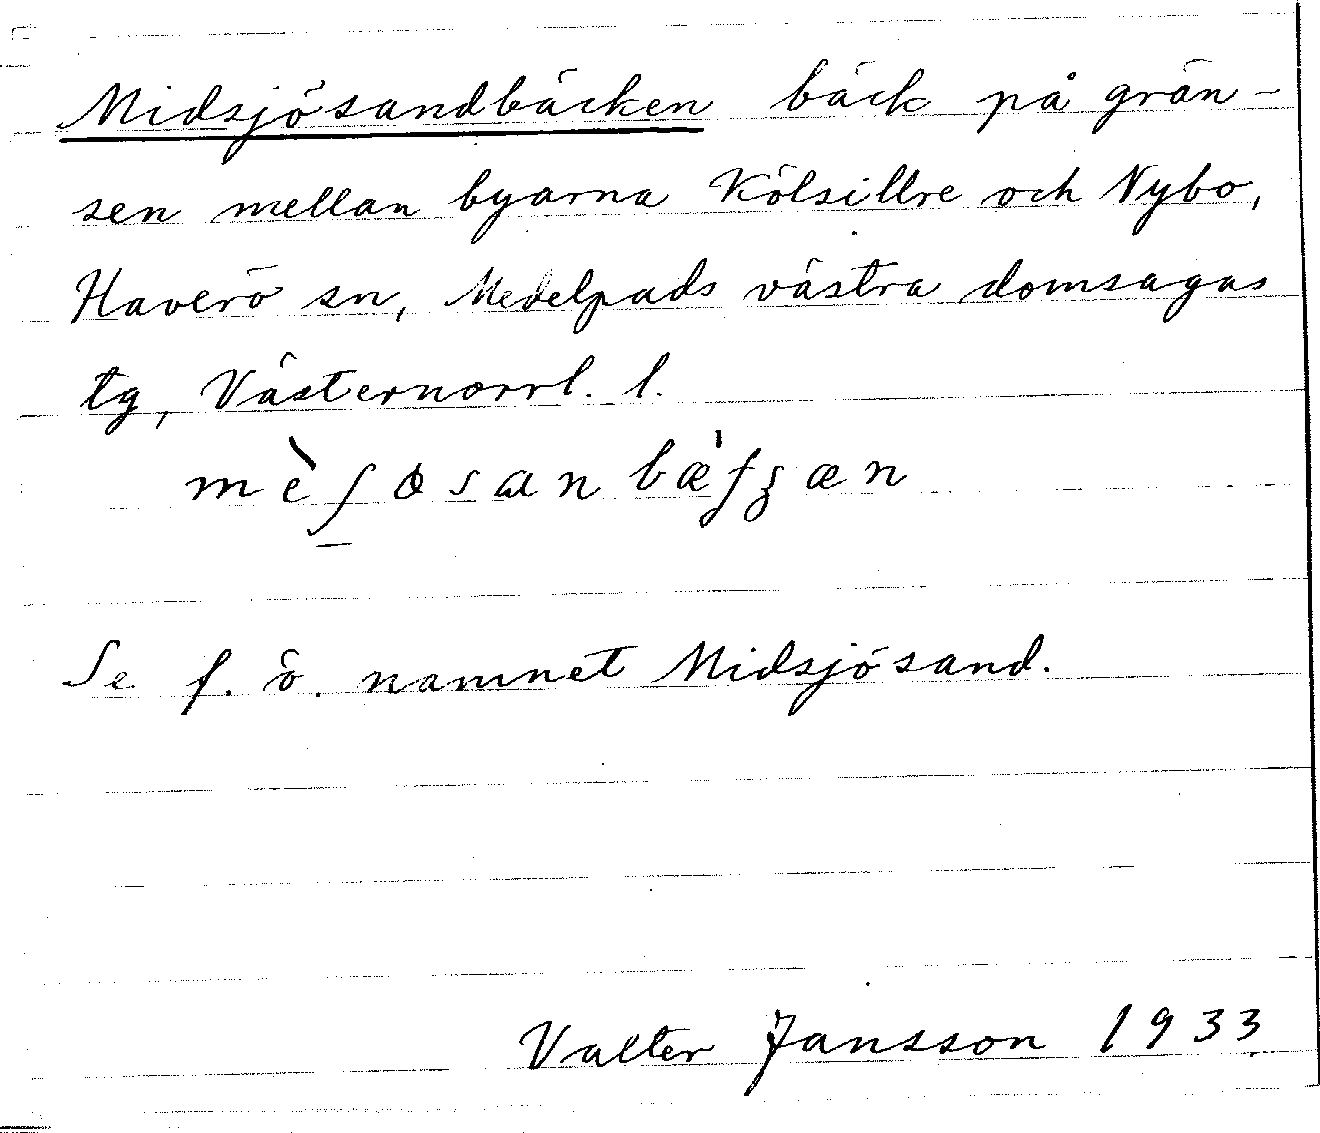 Midsjösandbäcken bäck på grän-
sen mellan byarna Kölsillre och Nybo,
Haverö sn, Medelpads västra domsagas
tg, Västernorrl. l.
Se f. ö. namnet Midsjösand.
Valter Jansson 1933